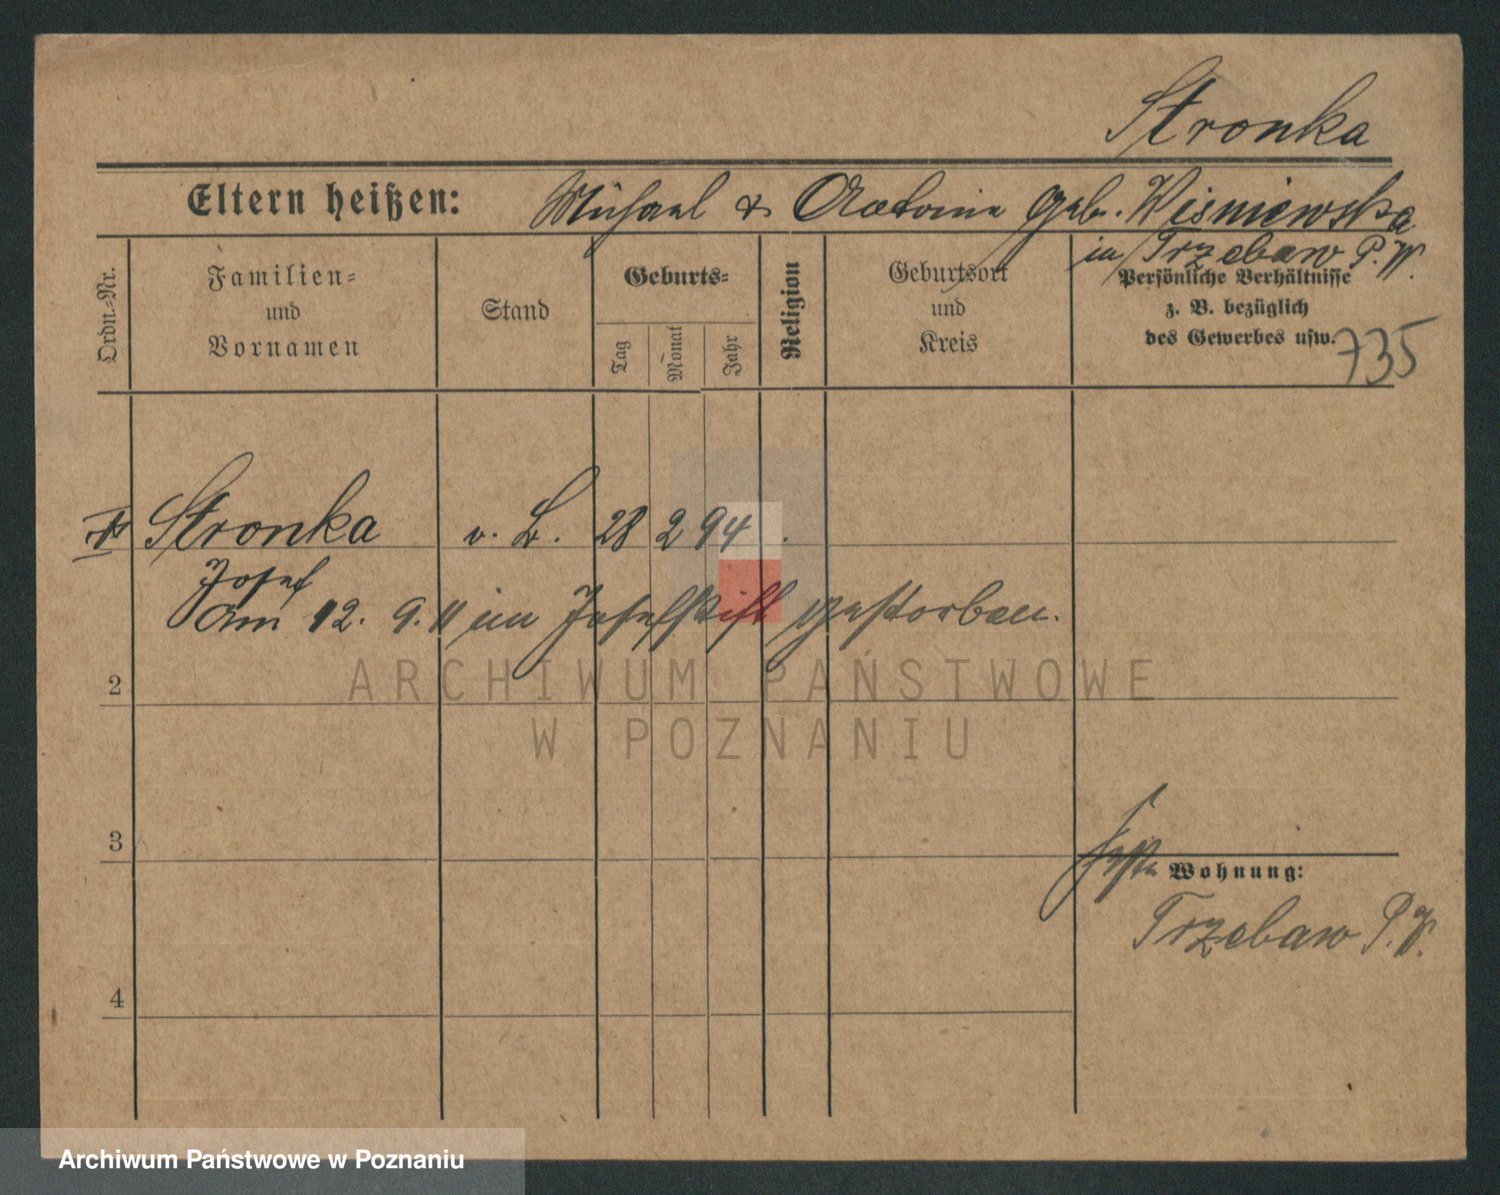 Stronka
Eltern heißen: Michael & Antonie geb. Wisniewska
in Trzebaw P. W.
Ordn.-Nr.
Familien-
und
Vornamen
Stand
Geburts-
Tag
Monat
Jahr
Religion
Geburtsort
und
Kreis
Persönliche Verhältnisse
z. B. bezüglich
des Gewerbes usw.
735
Stronka v. L. 28 2 94.
Josef
am 12. 9. 11 im Josefstift gestorben.
2
3
4
feste Wohnung:
Trzebaw P. W.
ARCHIWUM PAŃSTWOWE
W POZNANIU
Archiwum Państwowe w Poznaniu